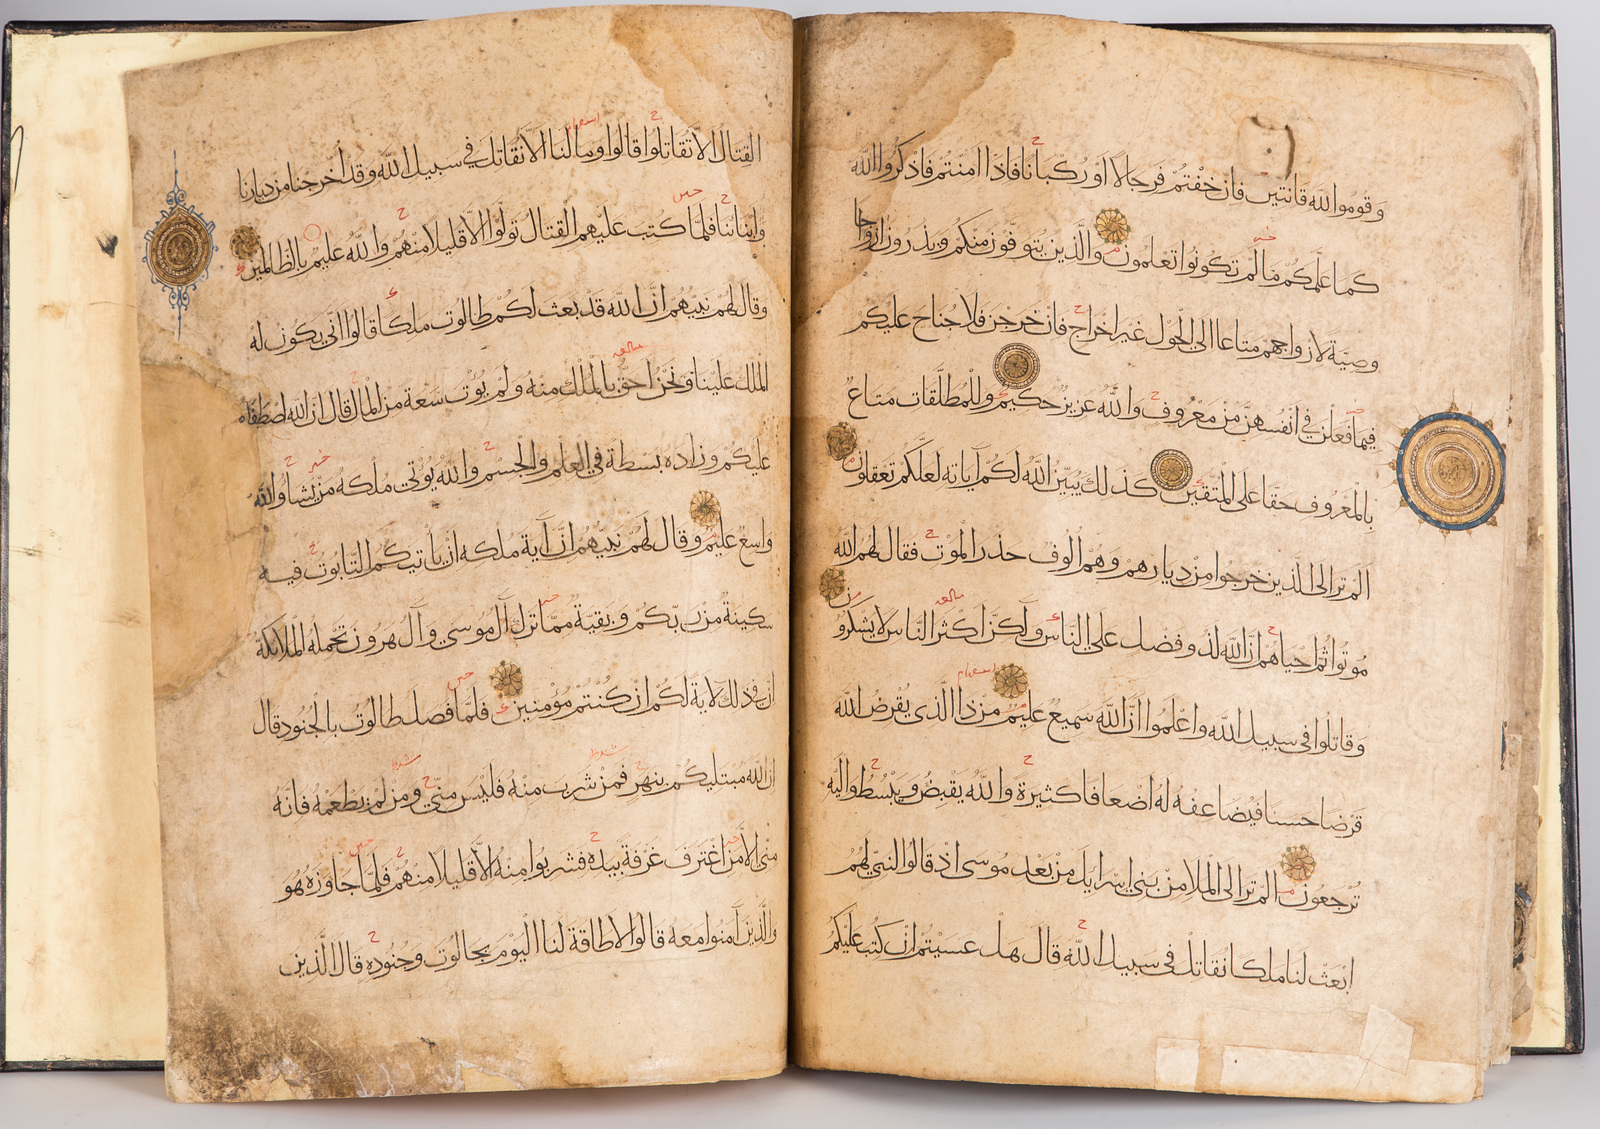 وقوموا لله قانتين فان خفتم فرجالا او ركبانا فاذا امنتم فاذكروا الله
كما علمكم ما لم تكونوا تعلمون والذين يتوفون منكم ويذرون ازواجا
وصية لازواجهم متاعا الى الحول غير اخراج فان خرجن فلا جناح عليكم
فيما فعلن في انفسهن من معروف والله عزيز حكيم وللمطلقات متاع
بالمعروف حقا على المتقين كذلك يبين الله لكم آياته لعلكم تعقلون
الم تر الى الذين خرجوا من ديارهم وهم الوف حذر الموت فقال لهم الله
موتوا ثم احياهم ان الله لذو فضل على الناس ولكن اكثر الناس لا يشكرون
وقاتلوا في سبيل الله واعلموا ان الله سميع عليم من ذا الذي يقرض الله
قرضا حسنا فيضاعفه له اضعافا كثيرة والله يقبض ويبسط واليه
ترجعون الم تر الى الملا من بني اسرايل من بعد موسى اذ قالوا لنبي لهم
ابعث لنا ملكا نقاتل في سبيل الله قال هل عسيتم ان كتب عليكم
القتال الا تقاتلوا قالوا وما لنا الا نقاتل في سبيل الله وقد اخرجنا من ديارنا
وابناينا فلما كتب عليهم القتال تولوا الا قليلا منهم والله عليم بالظالمين
وقال لهم نبيهم ان الله قد بعث لكم طالوت ملكا قالوا انى يكون له
الملك علينا ونحن احق بالملك منه ولم يوت سعة من المال قال ان الله اصطفاه
عليكم وزاده بسطة في العلم والجسم والله يوتي ملكه من يشا والله
واسع عليم وقال لهم نبيهم ان آية ملكه ان ياتيكم التابوت فيه
سكينة من ربكم وبقية مما ترك آل موسى وآل هرون تحمله الملايكة
ان في ذلك لاية لكم ان كنتم مؤمنين فلما فصل طالوت بالجنود قال
ان الله مبتليكم بنهر فمن شرب منه فليس مني ومن لم يطعمه فانه
مني الا من اغترف غرفة بيده فشربوا منه الا قليلا منهم فلما جاوزه هو
والذين آمنوا معه قالوا لا طاقة لنا اليوم بجالوت وجنوده قال الذين